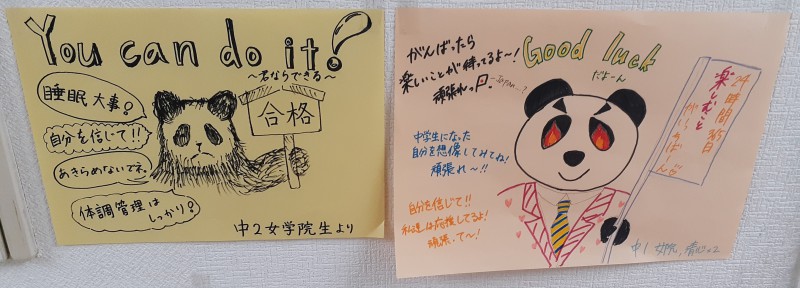 You can do it!
〜君ならできる〜
睡眠大事!
自分を信じて!!
あきらめないでネ。
体調管理は
しっかり!
合格
中2女学院生より
がんばったら
楽しいことが待ってるよ〜!
頑張れっ
Good luck
だよーん
中学生になった
自分を想像してみてね!
頑張れ〜!!
自分を信じて!!
私達は応援してるよ!
頑張って〜!
24時間365日
楽しむこと